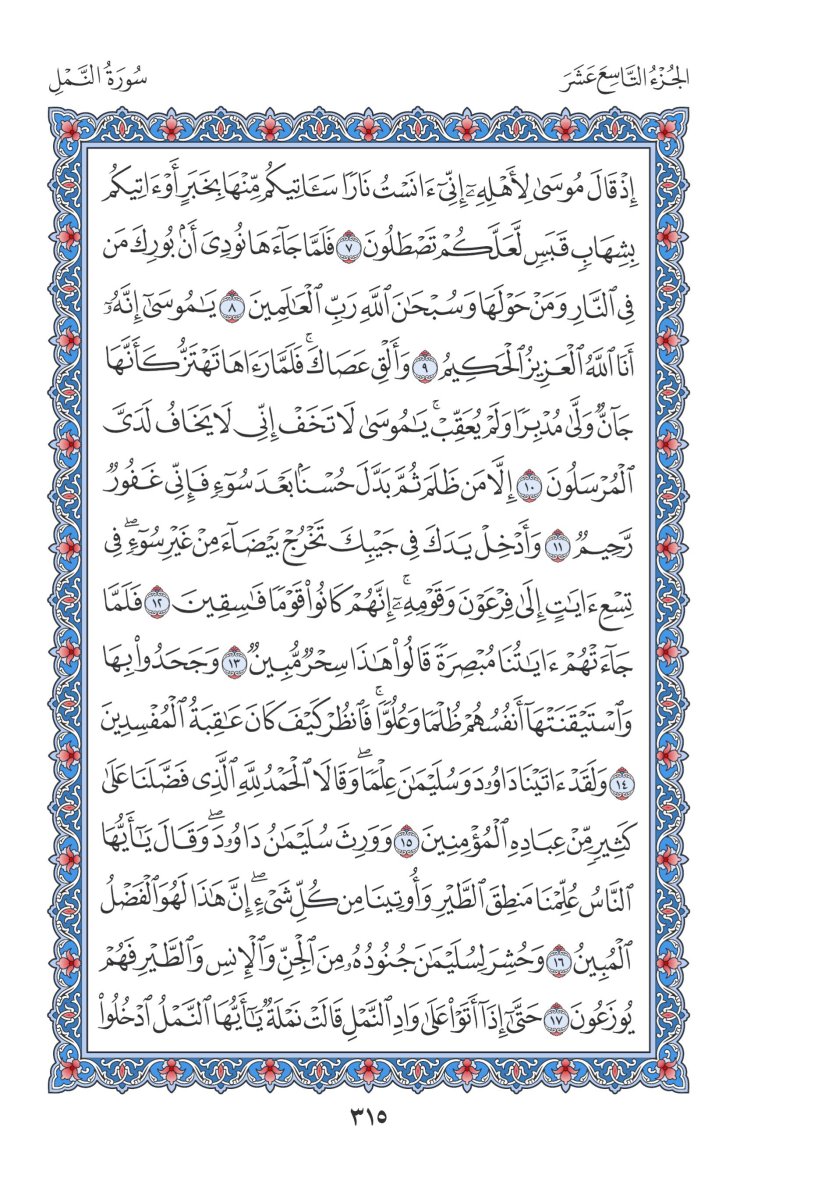 الجُزْءُ التَّاسِعَ عَشَرَ
سُورَةُ النَّمْلِ
إِذْ قَالَ مُوسَىٰ لِأَهْلِهِۦٓ إِنِّىٓ ءَانَسْتُ نَارًا سَـَٔاتِيكُم مِّنْهَا بِخَبَرٍ أَوْ ءَاتِيكُم
بِشِهَابٍ قَبَسٍ لَّعَلَّكُمْ تَصْطَلُونَ ٧ فَلَمَّا جَآءَهَا نُودِىَ أَنۢ بُورِكَ مَن
فِى ٱلنَّارِ وَمَنْ حَوْلَهَا وَسُبْحَـٰنَ ٱللَّهِ رَبِّ ٱلْعَـٰلَمِينَ ٨ يَـٰمُوسَىٰٓ إِنَّهُۥٓ
أَنَا ٱللَّهُ ٱلْعَزِيزُ ٱلْحَكِيمُ ٩ وَأَلْقِ عَصَاكَ ۚ فَلَمَّا رَءَاهَا تَهْتَزُّ كَأَنَّهَا
جَآنٌّ وَلَّىٰ مُدْبِرًا وَلَمْ يُعَقِّبْ ۚ يَـٰمُوسَىٰ لَا تَخَفْ إِنِّى لَا يَخَافُ لَدَىَّ
ٱلْمُرْسَلُونَ ١٠ إِلَّا مَن ظَلَمَ ثُمَّ بَدَّلَ حُسْنًۢا بَعْدَ سُوٓءٍ فَإِنِّى غَفُورٌ
رَّحِيمٌ ١١ وَأَدْخِلْ يَدَكَ فِى جَيْبِكَ تَخْرُجْ بَيْضَآءَ مِنْ غَيْرِ سُوٓءٍ ۖ فِى
تِسْعِ ءَايَـٰتٍ إِلَىٰ فِرْعَوْنَ وَقَوْمِهِۦٓ ۚ إِنَّهُمْ كَانُوا۟ قَوْمًا فَـٰسِقِينَ ١٢ فَلَمَّا
جَآءَتْهُمْ ءَايَـٰتُنَا مُبْصِرَةً قَالُوا۟ هَـٰذَا سِحْرٌ مُّبِينٌ ١٣ وَجَحَدُوا۟ بِهَا
وَٱسْتَيْقَنَتْهَآ أَنفُسُهُمْ ظُلْمًا وَعُلُوًّا ۚ فَٱنظُرْ كَيْفَ كَانَ عَـٰقِبَةُ ٱلْمُفْسِدِينَ
١٤ وَلَقَدْ ءَاتَيْنَا دَاوُۥدَ وَسُلَيْمَـٰنَ عِلْمًا ۖ وَقَالَا ٱلْحَمْدُ لِلَّهِ ٱلَّذِى فَضَّلَنَا عَلَىٰ
كَثِيرٍ مِّنْ عِبَادِهِ ٱلْمُؤْمِنِينَ ١٥ وَوَرِثَ سُلَيْمَـٰنُ دَاوُۥدَ ۖ وَقَالَ يَـٰٓأَيُّهَا
ٱلنَّاسُ عُلِّمْنَا مَنطِقَ ٱلطَّيْرِ وَأُوتِينَا مِن كُلِّ شَىْءٍ ۖ إِنَّ هَـٰذَا لَهُوَ ٱلْفَضْلُ
ٱلْمُبِينُ ١٦ وَحُشِرَ لِسُلَيْمَـٰنَ جُنُودُهُۥ مِنَ ٱلْجِنِّ وَٱلْإِنسِ وَٱلطَّيْرِ فَهُمْ
يُوزَعُونَ ١٧ حَتَّىٰٓ إِذَآ أَتَوْا۟ عَلَىٰ وَادِ ٱلنَّمْلِ قَالَتْ نَمْلَةٌ يَـٰٓأَيُّهَا ٱلنَّمْلُ ٱدْخُلُوا۟
٣١٥